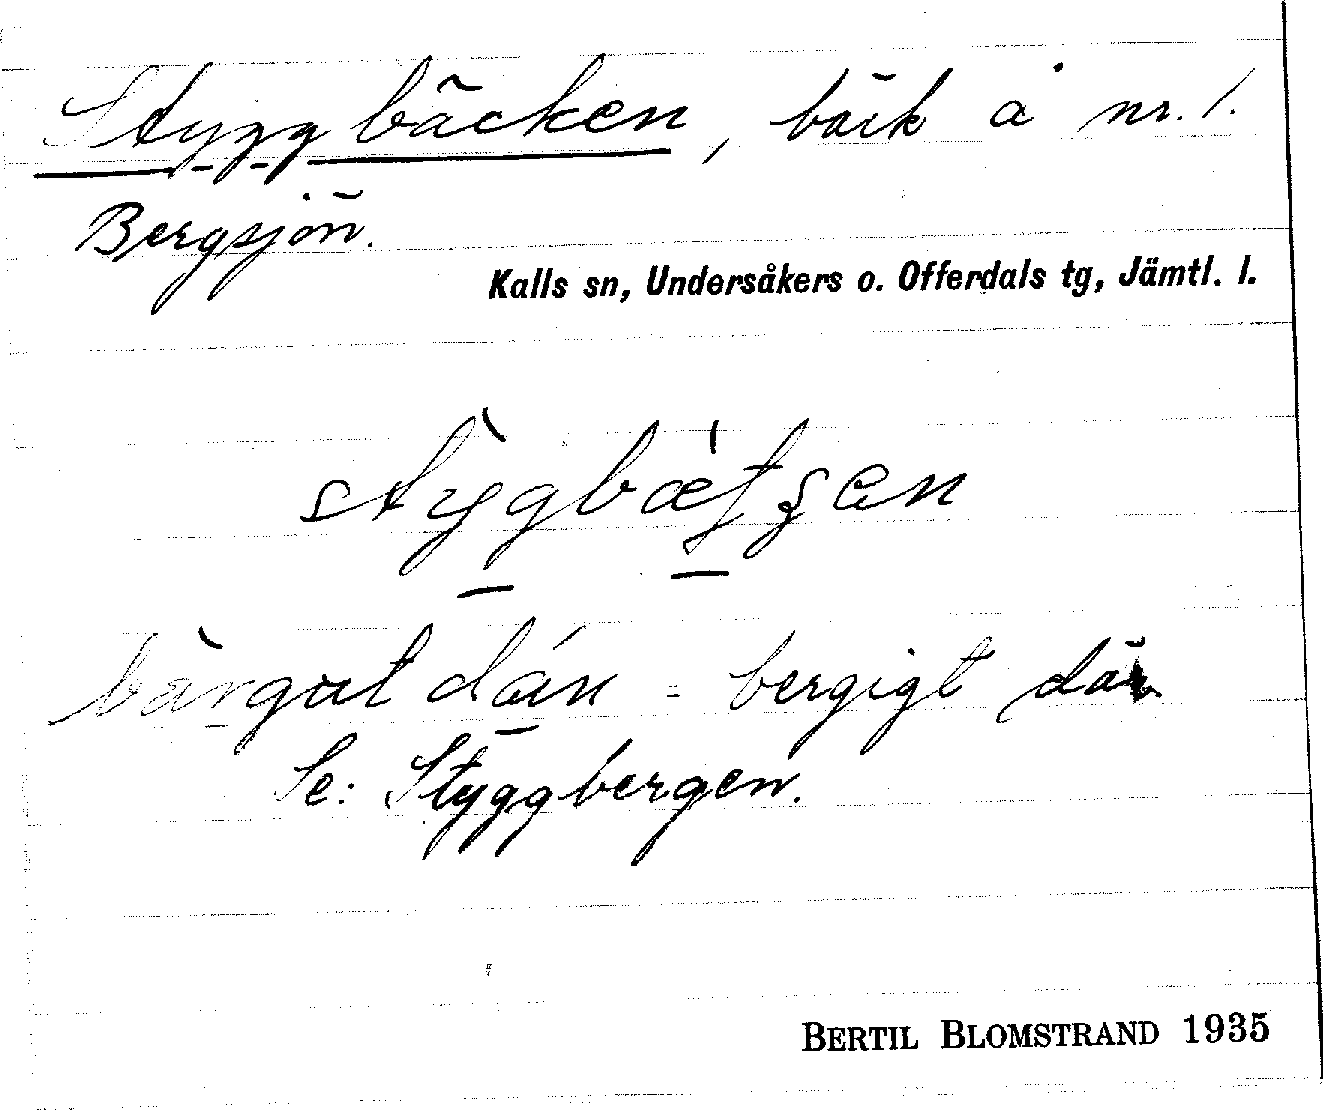 Styggbäcken, bäck å nr. 1.
Bergsjön.
Kalls sn, Undersåkers o. Offerdals tg, Jämtl. l.
bergigt där
Se: Styggbergen.
BERTIL BLOMSTRAND 1935